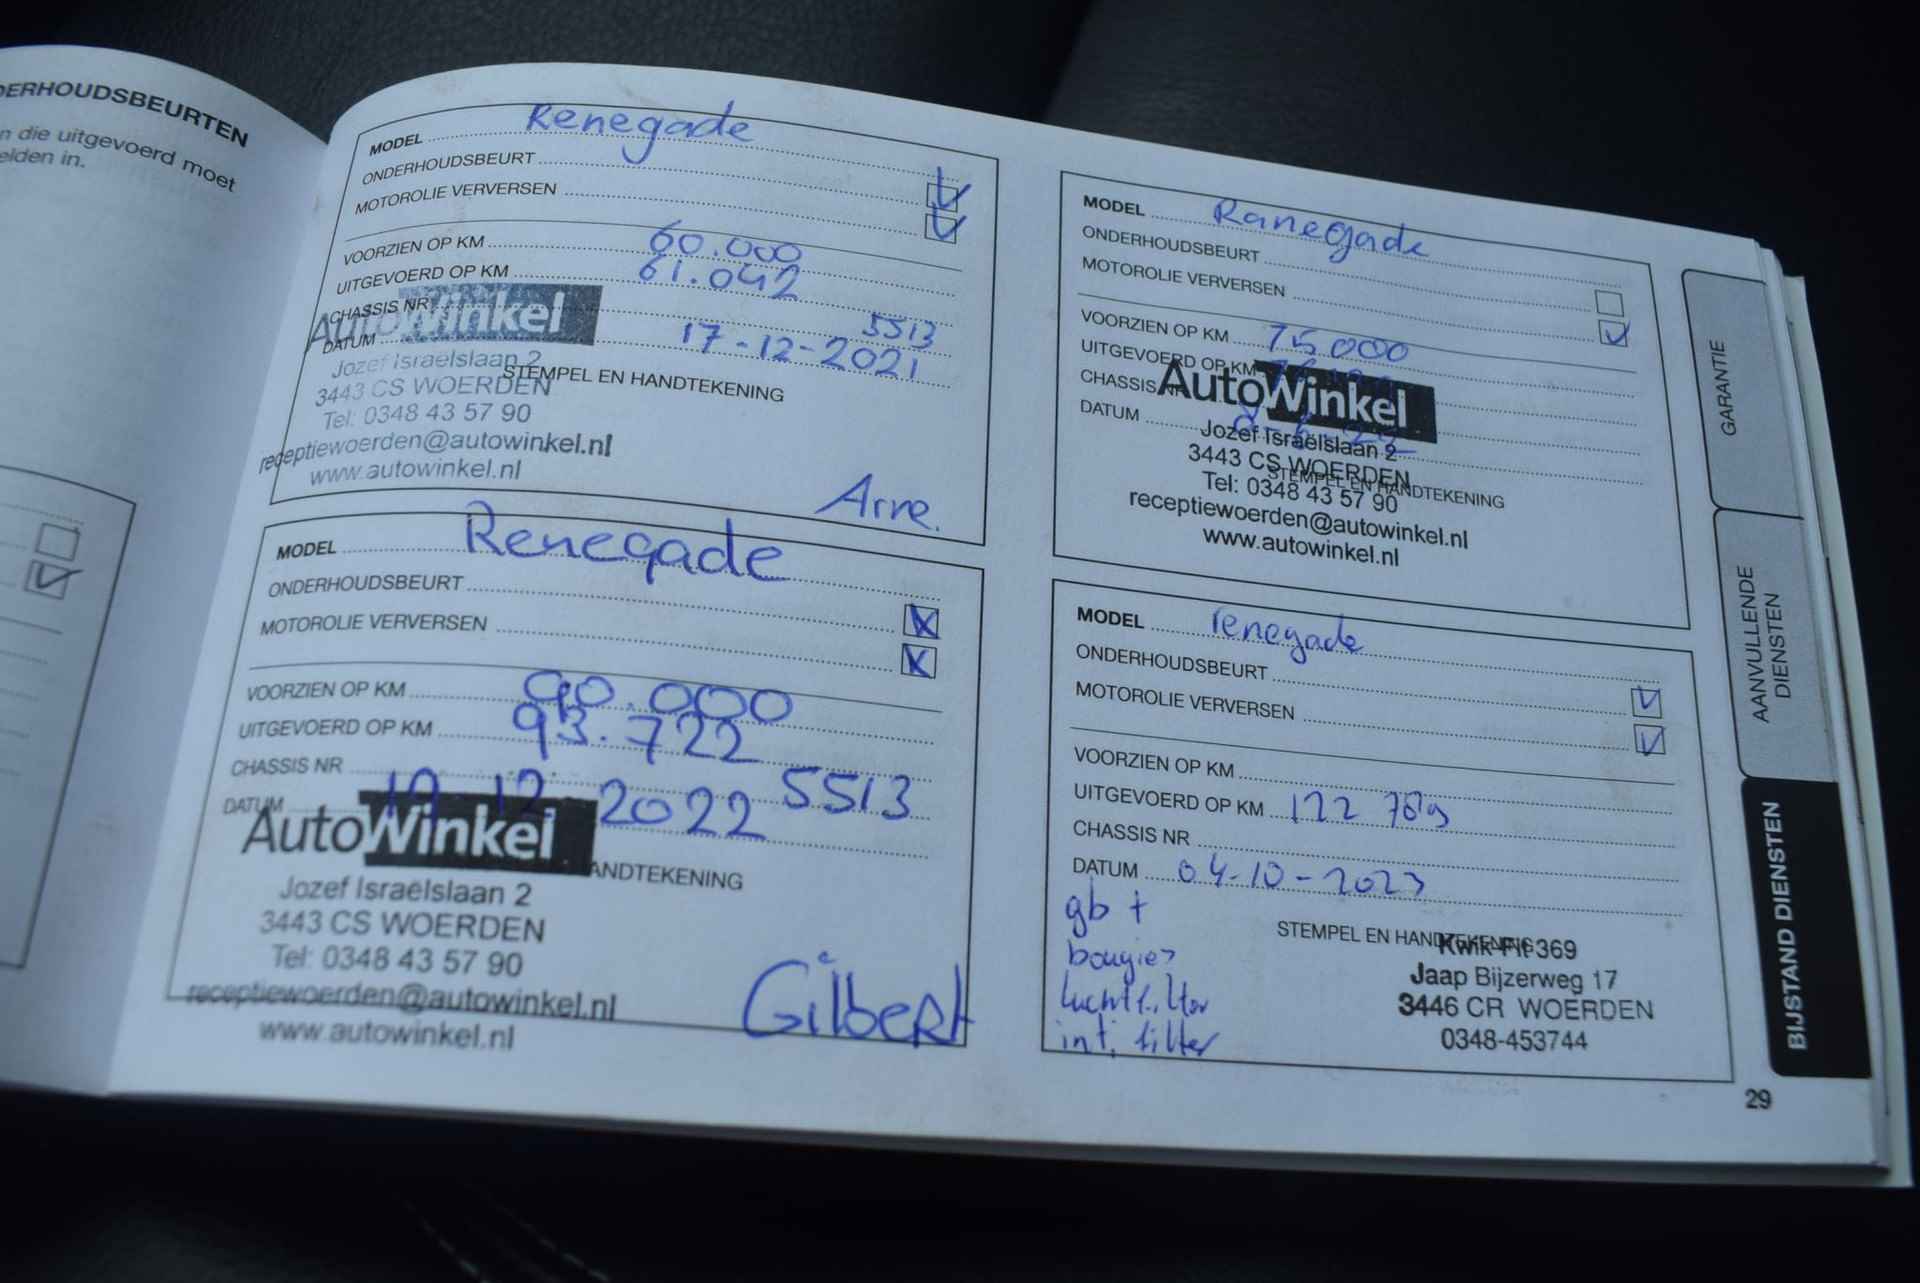 DERHOUDSBEURTEN
n die uitgevoerd moet
elden in.
MODEL Renegade
ONDERHOUDSBEURT
MOTOROLIE VERVERSEN
VOORZIEN OP KM 60.000
UITGEVOERD OP KM 61.042
CHASSIS NR 5513
DATUM 17-12-2021
STEMPEL EN HANDTEKENING
AutoWinkel
Jozef Israëlslaan 2
3443 CS WOERDEN
Tel: 0348 43 57 90
receptiewoerden@autowinkel.nl
www.autowinkel.nl
MODEL Ranegade
ONDERHOUDSBEURT
MOTOROLIE VERVERSEN
VOORZIEN OP KM 75.000
UITGEVOERD OP KM
CHASSIS NR
DATUM
STEMPEL EN HANDTEKENING
AutoWinkel
Jozef Israëlslaan 2
3443 CS WOERDEN
Tel: 0348 43 57 90
receptiewoerden@autowinkel.nl
www.autowinkel.nl
MODEL Renegade
ONDERHOUDSBEURT
MOTOROLIE VERVERSEN
VOORZIEN OP KM 90.000
UITGEVOERD OP KM 93.722
CHASSIS NR 5513
DATUM 19 12 2022
ANDTEKENING
AutoWinkel
Jozef Israëlslaan 2
3443 CS WOERDEN
Tel: 0348 43 57 90
receptiewoerden@autowinkel.nl
www.autowinkel.nl
Gilbert
MODEL renegade
ONDERHOUDSBEURT
MOTOROLIE VERVERSEN
VOORZIEN OP KM
UITGEVOERD OP KM 122 789
CHASSIS NR
DATUM 04-10-2023
gb +
bougies
luchtfilter
int. filter
STEMPEL EN HANDTEKENING
Kwik-Fit 369
Jaap Bijzerweg 17
3446 CR WOERDEN
0348-453744
GARANTIE
AANVULLENDE
DIENSTEN
BIJSTAND DIENSTEN
29